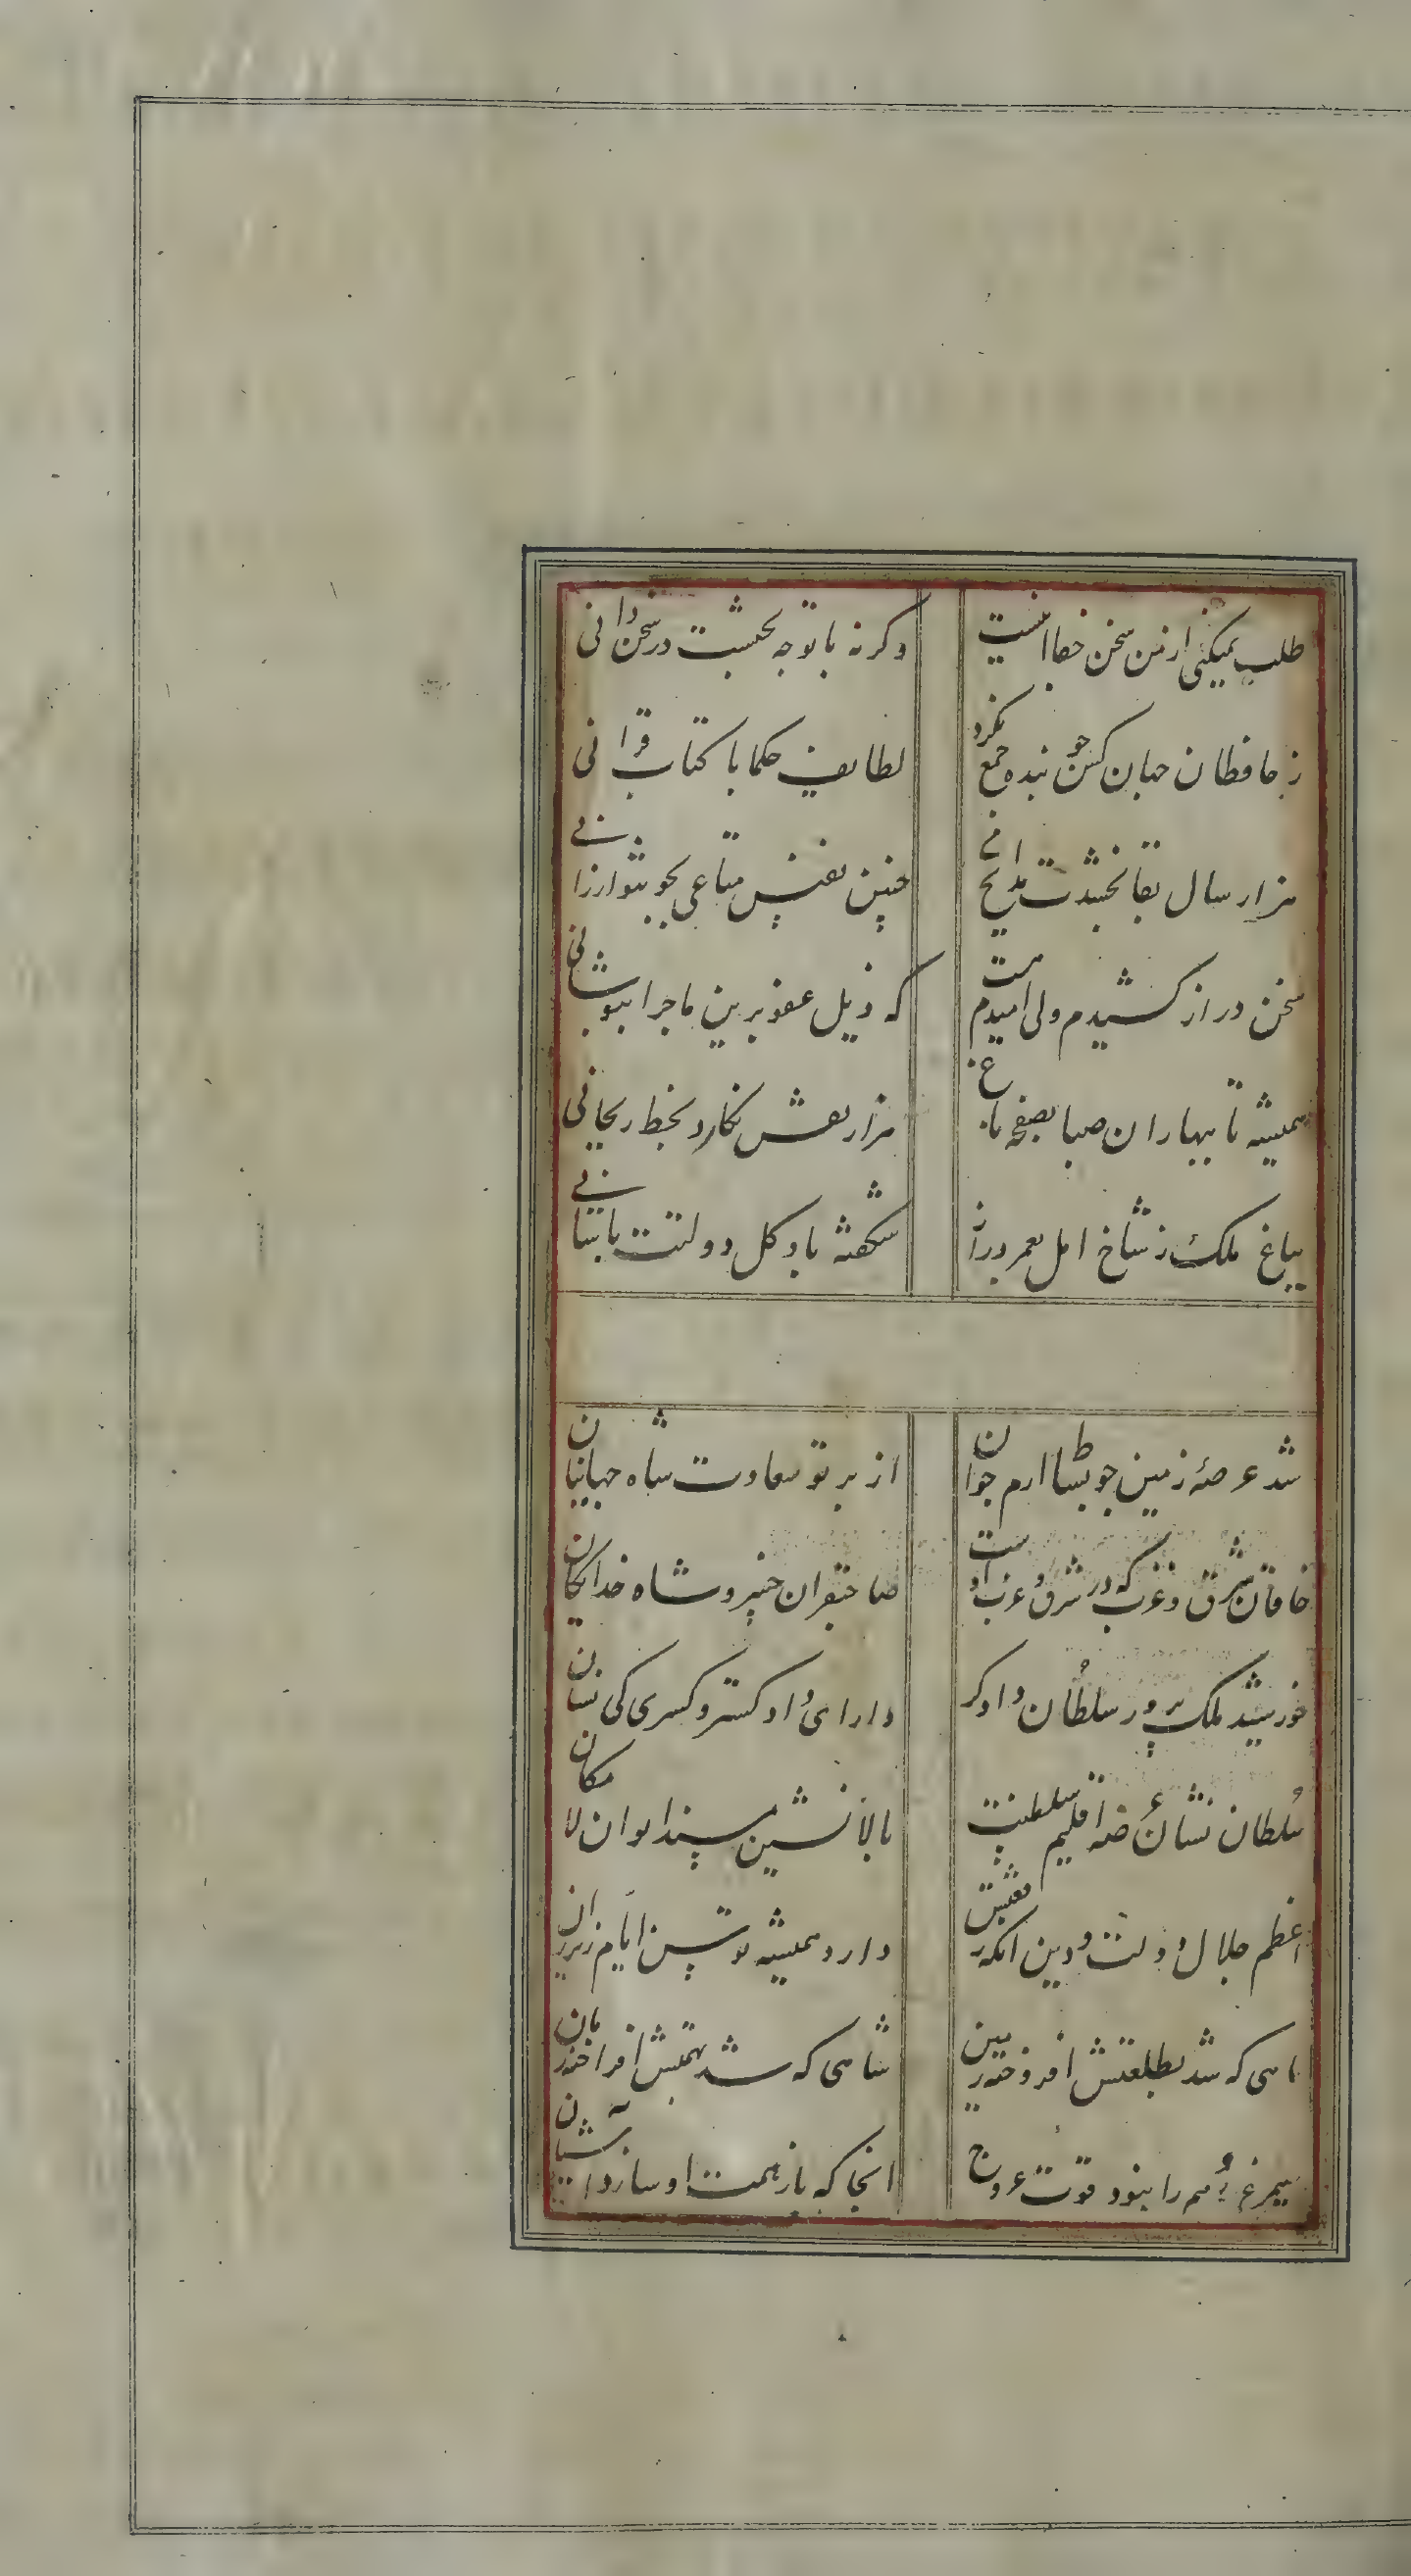 طلب نمیکنی از من سخن جفا اینست
وکرنه با تو چه بحثست در سخن دانی
ز حافظان جهان کس چو بنده جمع نکرد
لطایف حکما با کتاب قرانی
هزار سال بقا بخشدت مدایح من
چنین نفیس متاعی بچو تو ارزانی
سخن دراز کشیدم ولی امیدم هست
که ذیل عفو برین ماجرا بپوشانی
همیشه تا ببهاران صبا بصفحه باغ
هزار نقش نکارد بخط ریحانی
بباغ ملک ز شاخ امل بعمر دراز
شکفته باد کل دولتت باسانی
شد عرصهٔ زمین چو بساط ارم جوان
از پرتو سعادت شاه جهانیان
خاقان شرق و غرب که در شرق و غرب اوست
صاحبقران خسرو و شاه خدایکان
خورشید ملک پرور سلطان دادکر
دارای دادکستر و کسری کی نشان
سلطان نشان عرصهٔ اقلیم سلطنت
بالانشین مسند ایوان لامکان
اعظم جلال دولت و دین انکه رفعتش
دارد همیشه توسن ایام زیر ران
ماهی که شد بطلعتش افروخته زمین
شاهی که شد بهمتش افراخته زمان
سیمرغ وهم را نبود قوت عروج
انجا که باز همت او سازد اشیان